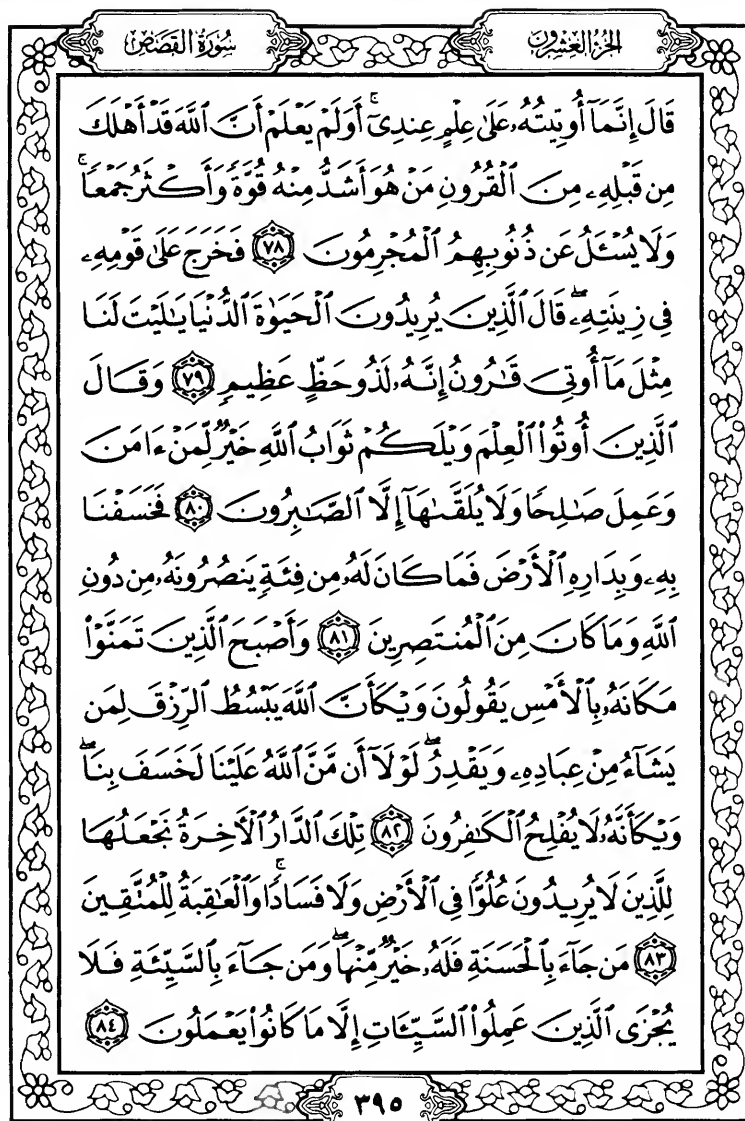 الجزء العشرون
سورة القصص
قَالَ إِنَّمَآ أُوتِيتُهُۥ عَلَىٰ عِلْمٍ عِندِىٓ ۚ أَوَلَمْ يَعْلَمْ أَنَّ ٱللَّهَ قَدْ أَهْلَكَ
مِن قَبْلِهِۦ مِنَ ٱلْقُرُونِ مَنْ هُوَ أَشَدُّ مِنْهُ قُوَّةً وَأَكْثَرُ جَمْعًا ۚ
وَلَا يُسْـَٔلُ عَن ذُنُوبِهِمُ ٱلْمُجْرِمُونَ ٧٨ فَخَرَجَ عَلَىٰ قَوْمِهِۦ
فِى زِينَتِهِۦ ۖ قَالَ ٱلَّذِينَ يُرِيدُونَ ٱلْحَيَوٰةَ ٱلدُّنْيَا يَٰلَيْتَ لَنَا
مِثْلَ مَآ أُوتِىَ قَٰرُونُ إِنَّهُۥ لَذُو حَظٍّ عَظِيمٍ ٧٩ وَقَالَ
ٱلَّذِينَ أُوتُوا۟ ٱلْعِلْمَ وَيْلَكُمْ ثَوَابُ ٱللَّهِ خَيْرٌ لِّمَنْ ءَامَنَ
وَعَمِلَ صَٰلِحًا وَلَا يُلَقَّىٰهَآ إِلَّا ٱلصَّٰبِرُونَ ٨٠ فَخَسَفْنَا
بِهِۦ وَبِدَارِهِ ٱلْأَرْضَ فَمَا كَانَ لَهُۥ مِن فِئَةٍ يَنصُرُونَهُۥ مِن دُونِ
ٱللَّهِ وَمَا كَانَ مِنَ ٱلْمُنتَصِرِينَ ٨١ وَأَصْبَحَ ٱلَّذِينَ تَمَنَّوْا۟
مَكَانَهُۥ بِٱلْأَمْسِ يَقُولُونَ وَيْكَأَنَّ ٱللَّهَ يَبْسُطُ ٱلرِّزْقَ لِمَن
يَشَآءُ مِنْ عِبَادِهِۦ وَيَقْدِرُ ۖ لَوْلَآ أَن مَّنَّ ٱللَّهُ عَلَيْنَا لَخَسَفَ بِنَا ۖ
وَيْكَأَنَّهُۥ لَا يُفْلِحُ ٱلْكَٰفِرُونَ ٨٢ تِلْكَ ٱلدَّارُ ٱلْءَاخِرَةُ نَجْعَلُهَا
لِلَّذِينَ لَا يُرِيدُونَ عُلُوًّا فِى ٱلْأَرْضِ وَلَا فَسَادًا ۚ وَٱلْعَٰقِبَةُ لِلْمُتَّقِينَ
٨٣ مَن جَآءَ بِٱلْحَسَنَةِ فَلَهُۥ خَيْرٌ مِّنْهَا ۖ وَمَن جَآءَ بِٱلسَّيِّئَةِ فَلَا
يُجْزَى ٱلَّذِينَ عَمِلُوا۟ ٱلسَّيِّـَٔاتِ إِلَّا مَا كَانُوا۟ يَعْمَلُونَ ٨٤
٣٩٥